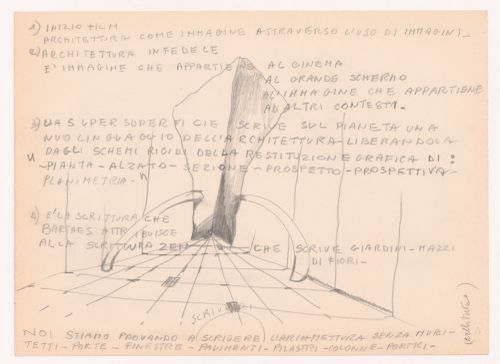 1) INIZIO FILM
ARCHITETTURA COME IMMAGINE ATTRAVERSO L'USO DI IMMAGINI_
2) ARCHITETTURA INFEDELE
E' IMMAGINE CHE APPARTIENE AL CINEMA
AL GRANDE SCHERMO
ALL'IMMAGINE CHE APPARTIENE
AD ALTRI CONTESTI.
3) LA SUPERSUPERFICIE SCRIVE SUL PIANETA UNA
NUO LINGUAGGIO DELL'ARCHITETTURA LIBERANDOLA
DAGLI SCHEMI RIGIDI DELLA RESTITUZIONE GRAFICA DI:
"PIANTA - ALZATO - SEZIONE - PROSPETTO - PROSPETTIVA -
PLANIMETRIA - "
4) E' LA SCRITTURA CHE
BARTHES ATTRIBUISCE
ALLA SCRITTURA ZEN CHE SCRIVE GIARDINI - MAZZI
DI FIORI -
NOI STIAMO PROVANDO A (SCRIVERE) L'ARCHITETTURA SENZA MURI -
TETTI - PORTE - FINESTRE - PAVIMENTI - PILASTRI - COLONNE - PORTICI -